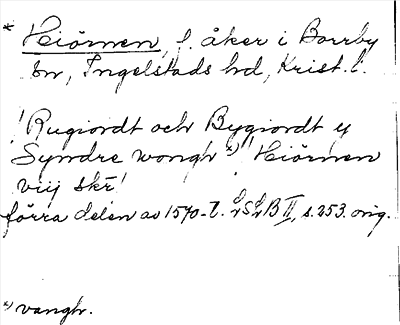 * Hiörnen, f. åker i Borrby
sn, Ingelstads hd, Krist. l.
"Rugiordt och Bygiordt y
Syndre wongh x) Hiörnen
viij skr̄"
förra delen av 1570-t. LSLB II, s. 253. orig.
x) vangh.